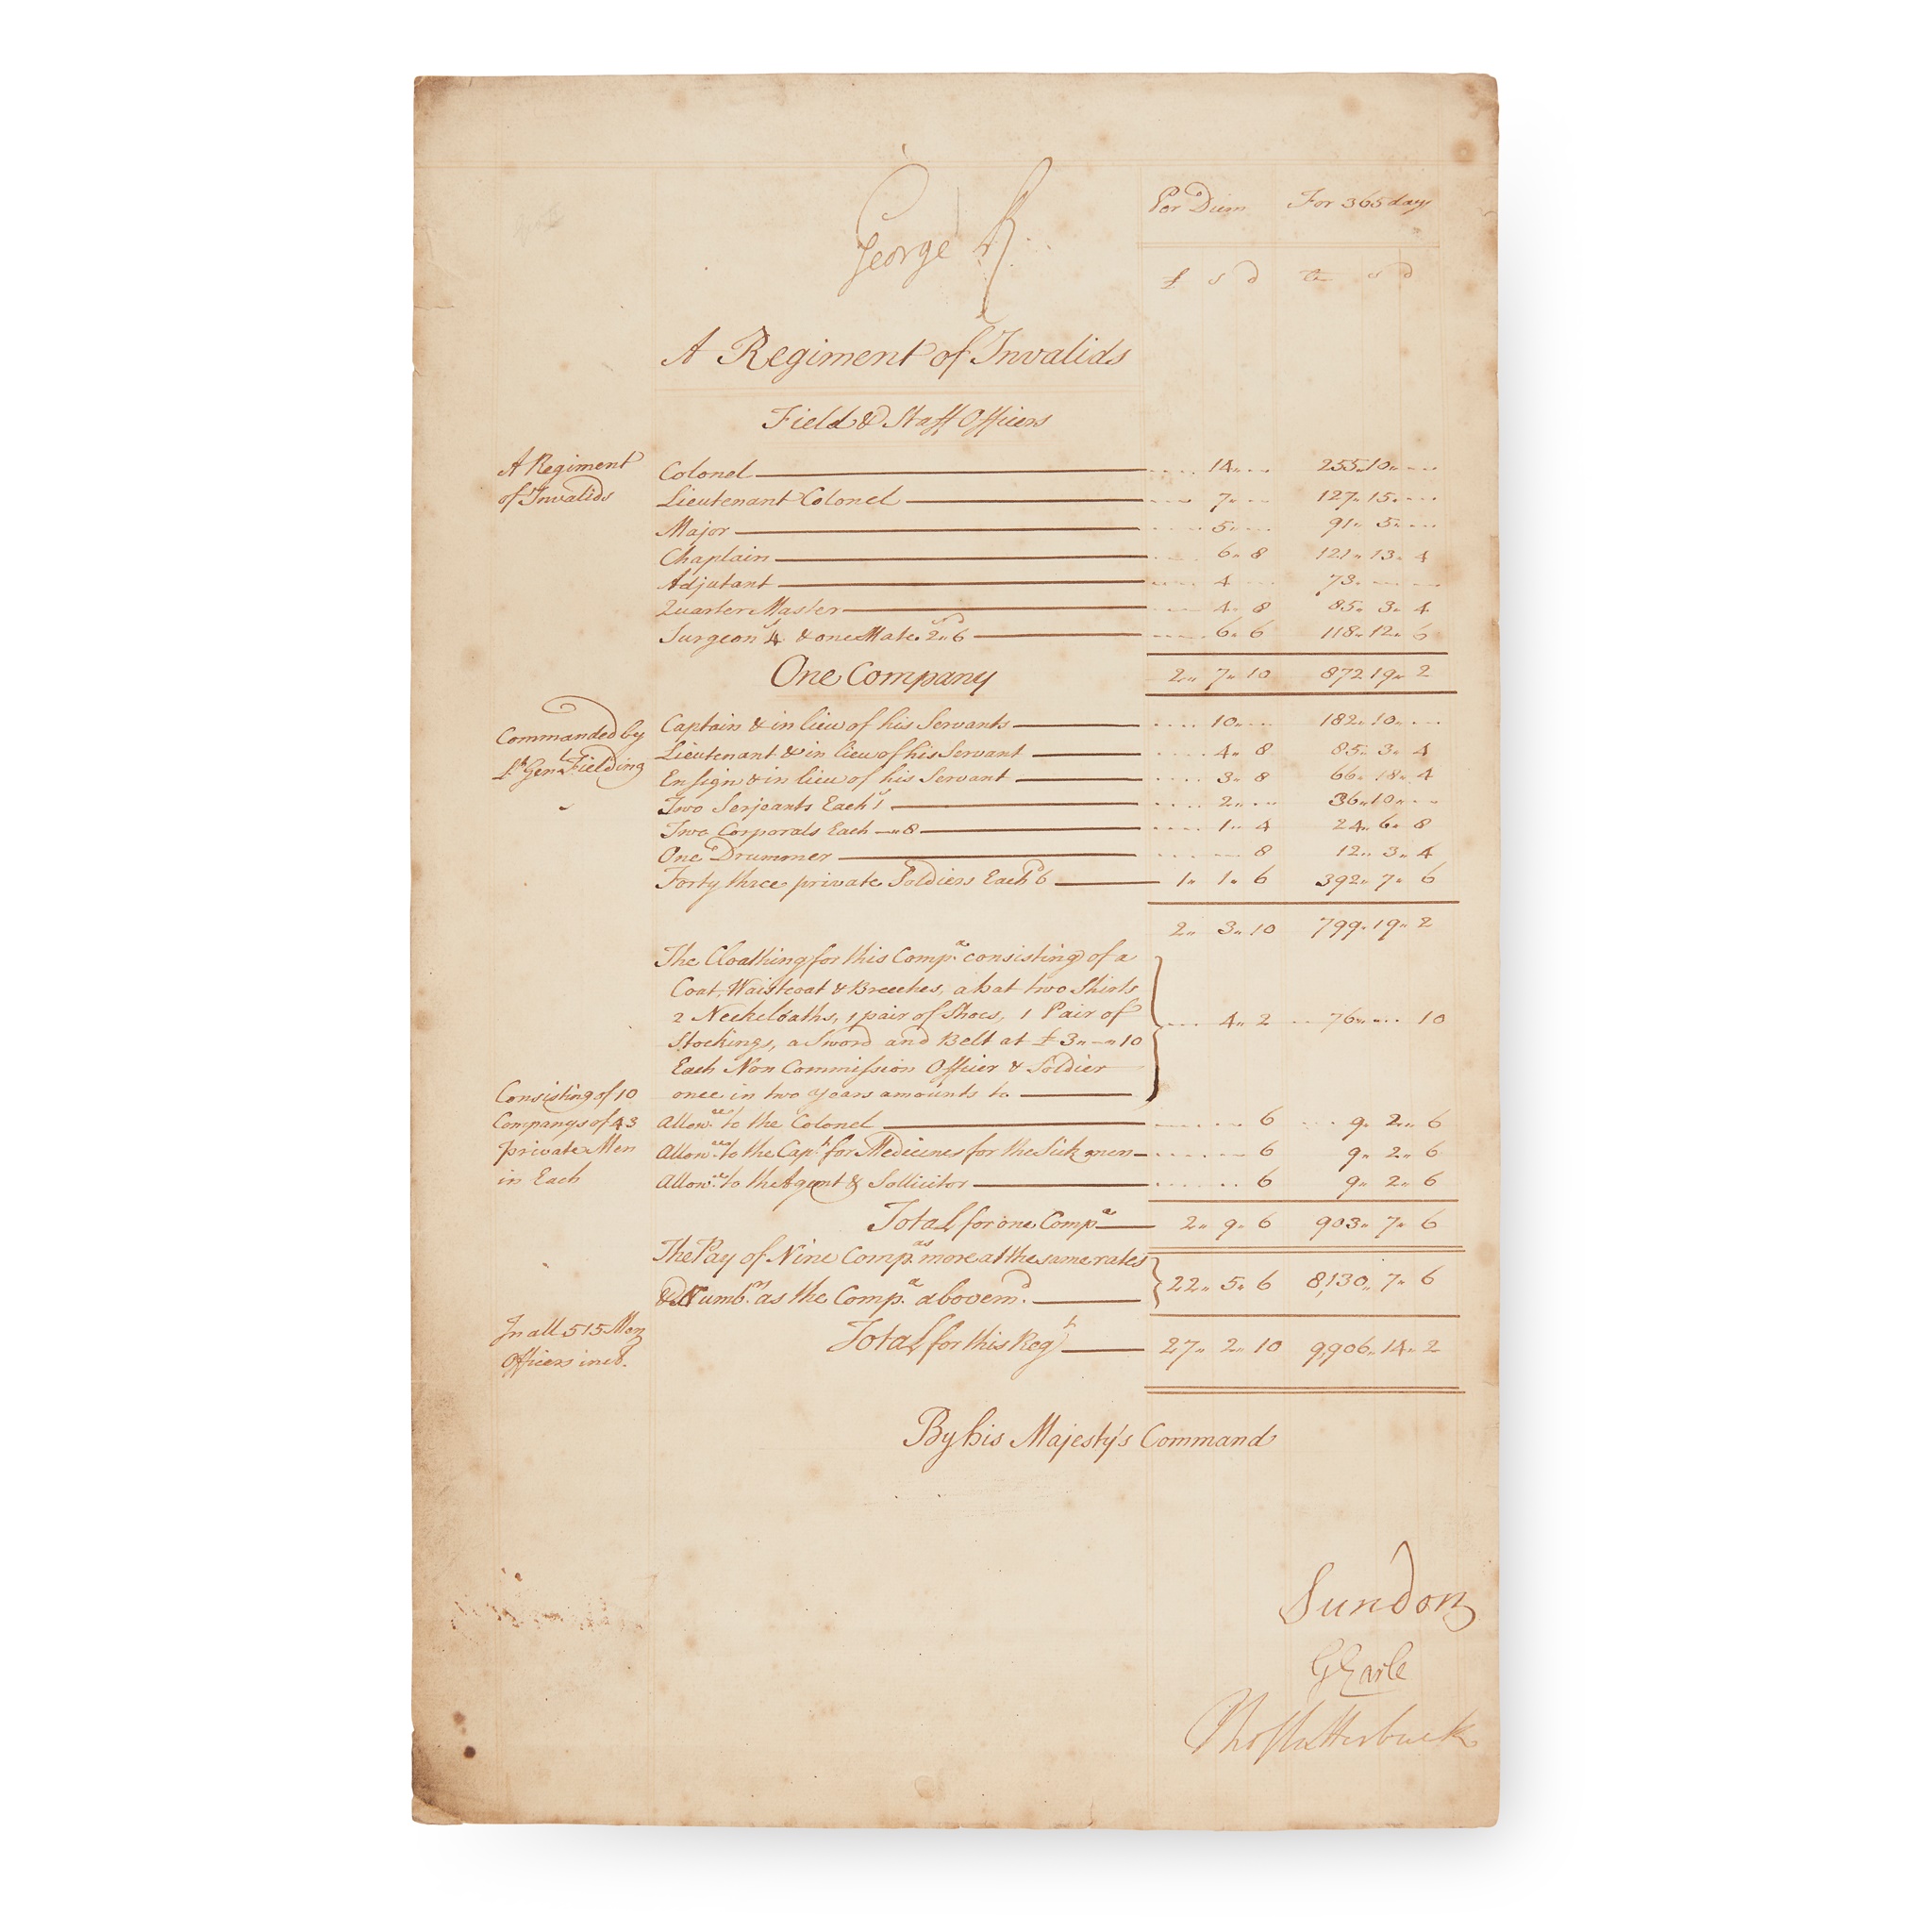 George R
Per Diem For 365 days
£ s d £ s d
A Regiment of Invalids
Field & Staff Officers
A Regiment
of Invalids
Colonel 14 255 10
Lieutenant Colonel 7 127 15
Major 5 91 5
Chaplain 6 8 121 13 4
Adjutant 4 73
Quarter Master 4 8 85 3 4
Surgeon 4s & one Mate 2s 6d 6 6 118 12 6
2 7 10 872 19 2
One Company
Commanded by
Lt Genl Fielding
Captain & in lieu of his Servants 10 182 10
Lieutenant & in lieu of his Servant 4 8 85 3 4
Ensign & in lieu of his Servant 3 8 66 18 4
Two Serjeants Each 1s 2 36 10
Two Corporals Each 8 1 4 24 6 8
One Drummer 8 12 3 4
Forty three private Soldiers Each 6d 1 1 6 392 7 6
2 3 10 799 19 2
The Cloathing for this Compa consisting of a
Coat, Waistcoat & Breeches, a hat two Shirts
2 Neckcloaths, 1 pair of Shoes, 1 Pair of
Stockings, a Sword and Belt at £3 10
Each Non Commission Officer & Soldier
once in two years amounts to 4 2 76 10
Consisting of 10
Companys of 43
private Men
in Each
Allowce to the Colonel 6 9 2 6
Allowce to the Capt for Medicines for the Sick men 6 9 2 6
Allowce to the Agent & Sollicitor 6 9 2 6
Total for one Compa 2 9 6 903 7 6
The Pay of Nine Compas more at the same rates
& Numbrs as the Compa abovemd 22 5 6 8,130 7 6
In all 515 Men
Officers incd.
Total for this Regt 27 2 10 9,906 14 2
By his Majesty's Command
Sundon
G Earle
Tho Clutterbuck